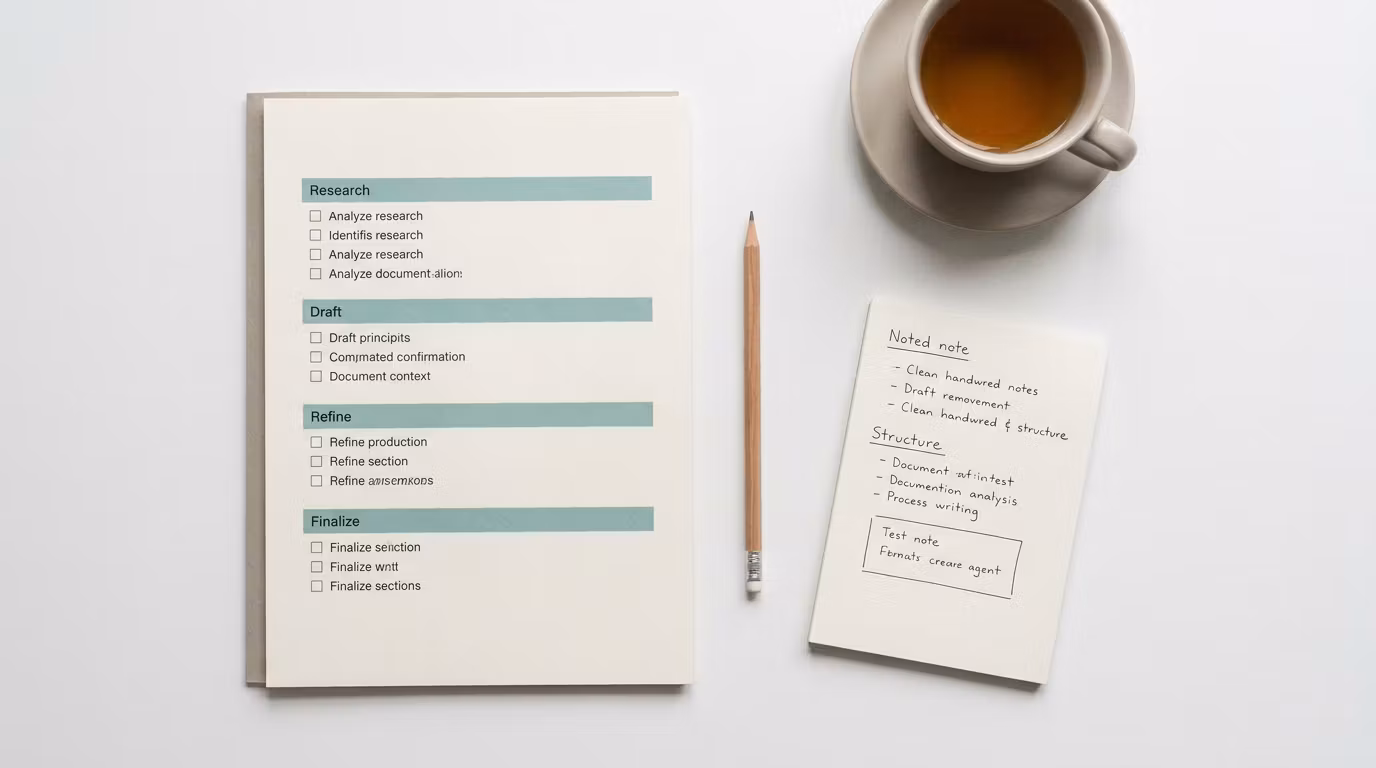 Research
Analyze research
Identifis research
Analyze research
Analyze document
Draft
Draft principits
confirmation
Document context
Refine
Refine production
Refine section
Refine
Finalize
Finalize
Finalize
Finalize sections
Noted note
- Clean handwred notes
- Draft removement
- Clean handwred & structure
Structure
- Document
- Documention analysis
- Process writing
Test note
creare agent